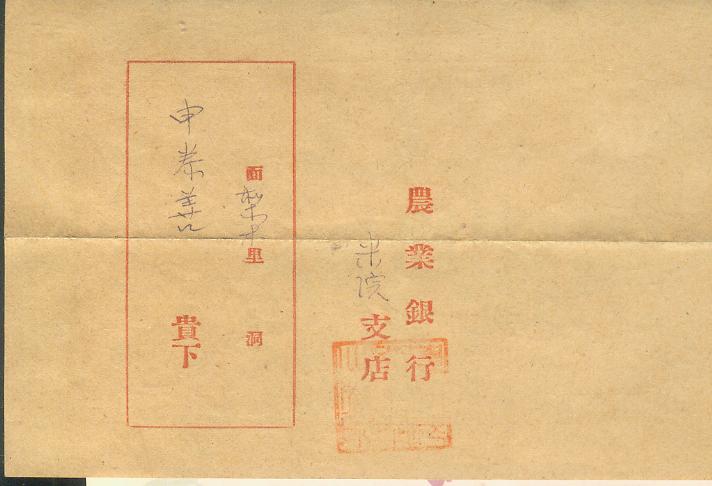 農業銀行
米院支店
面梨木里洞
申泰善貴下